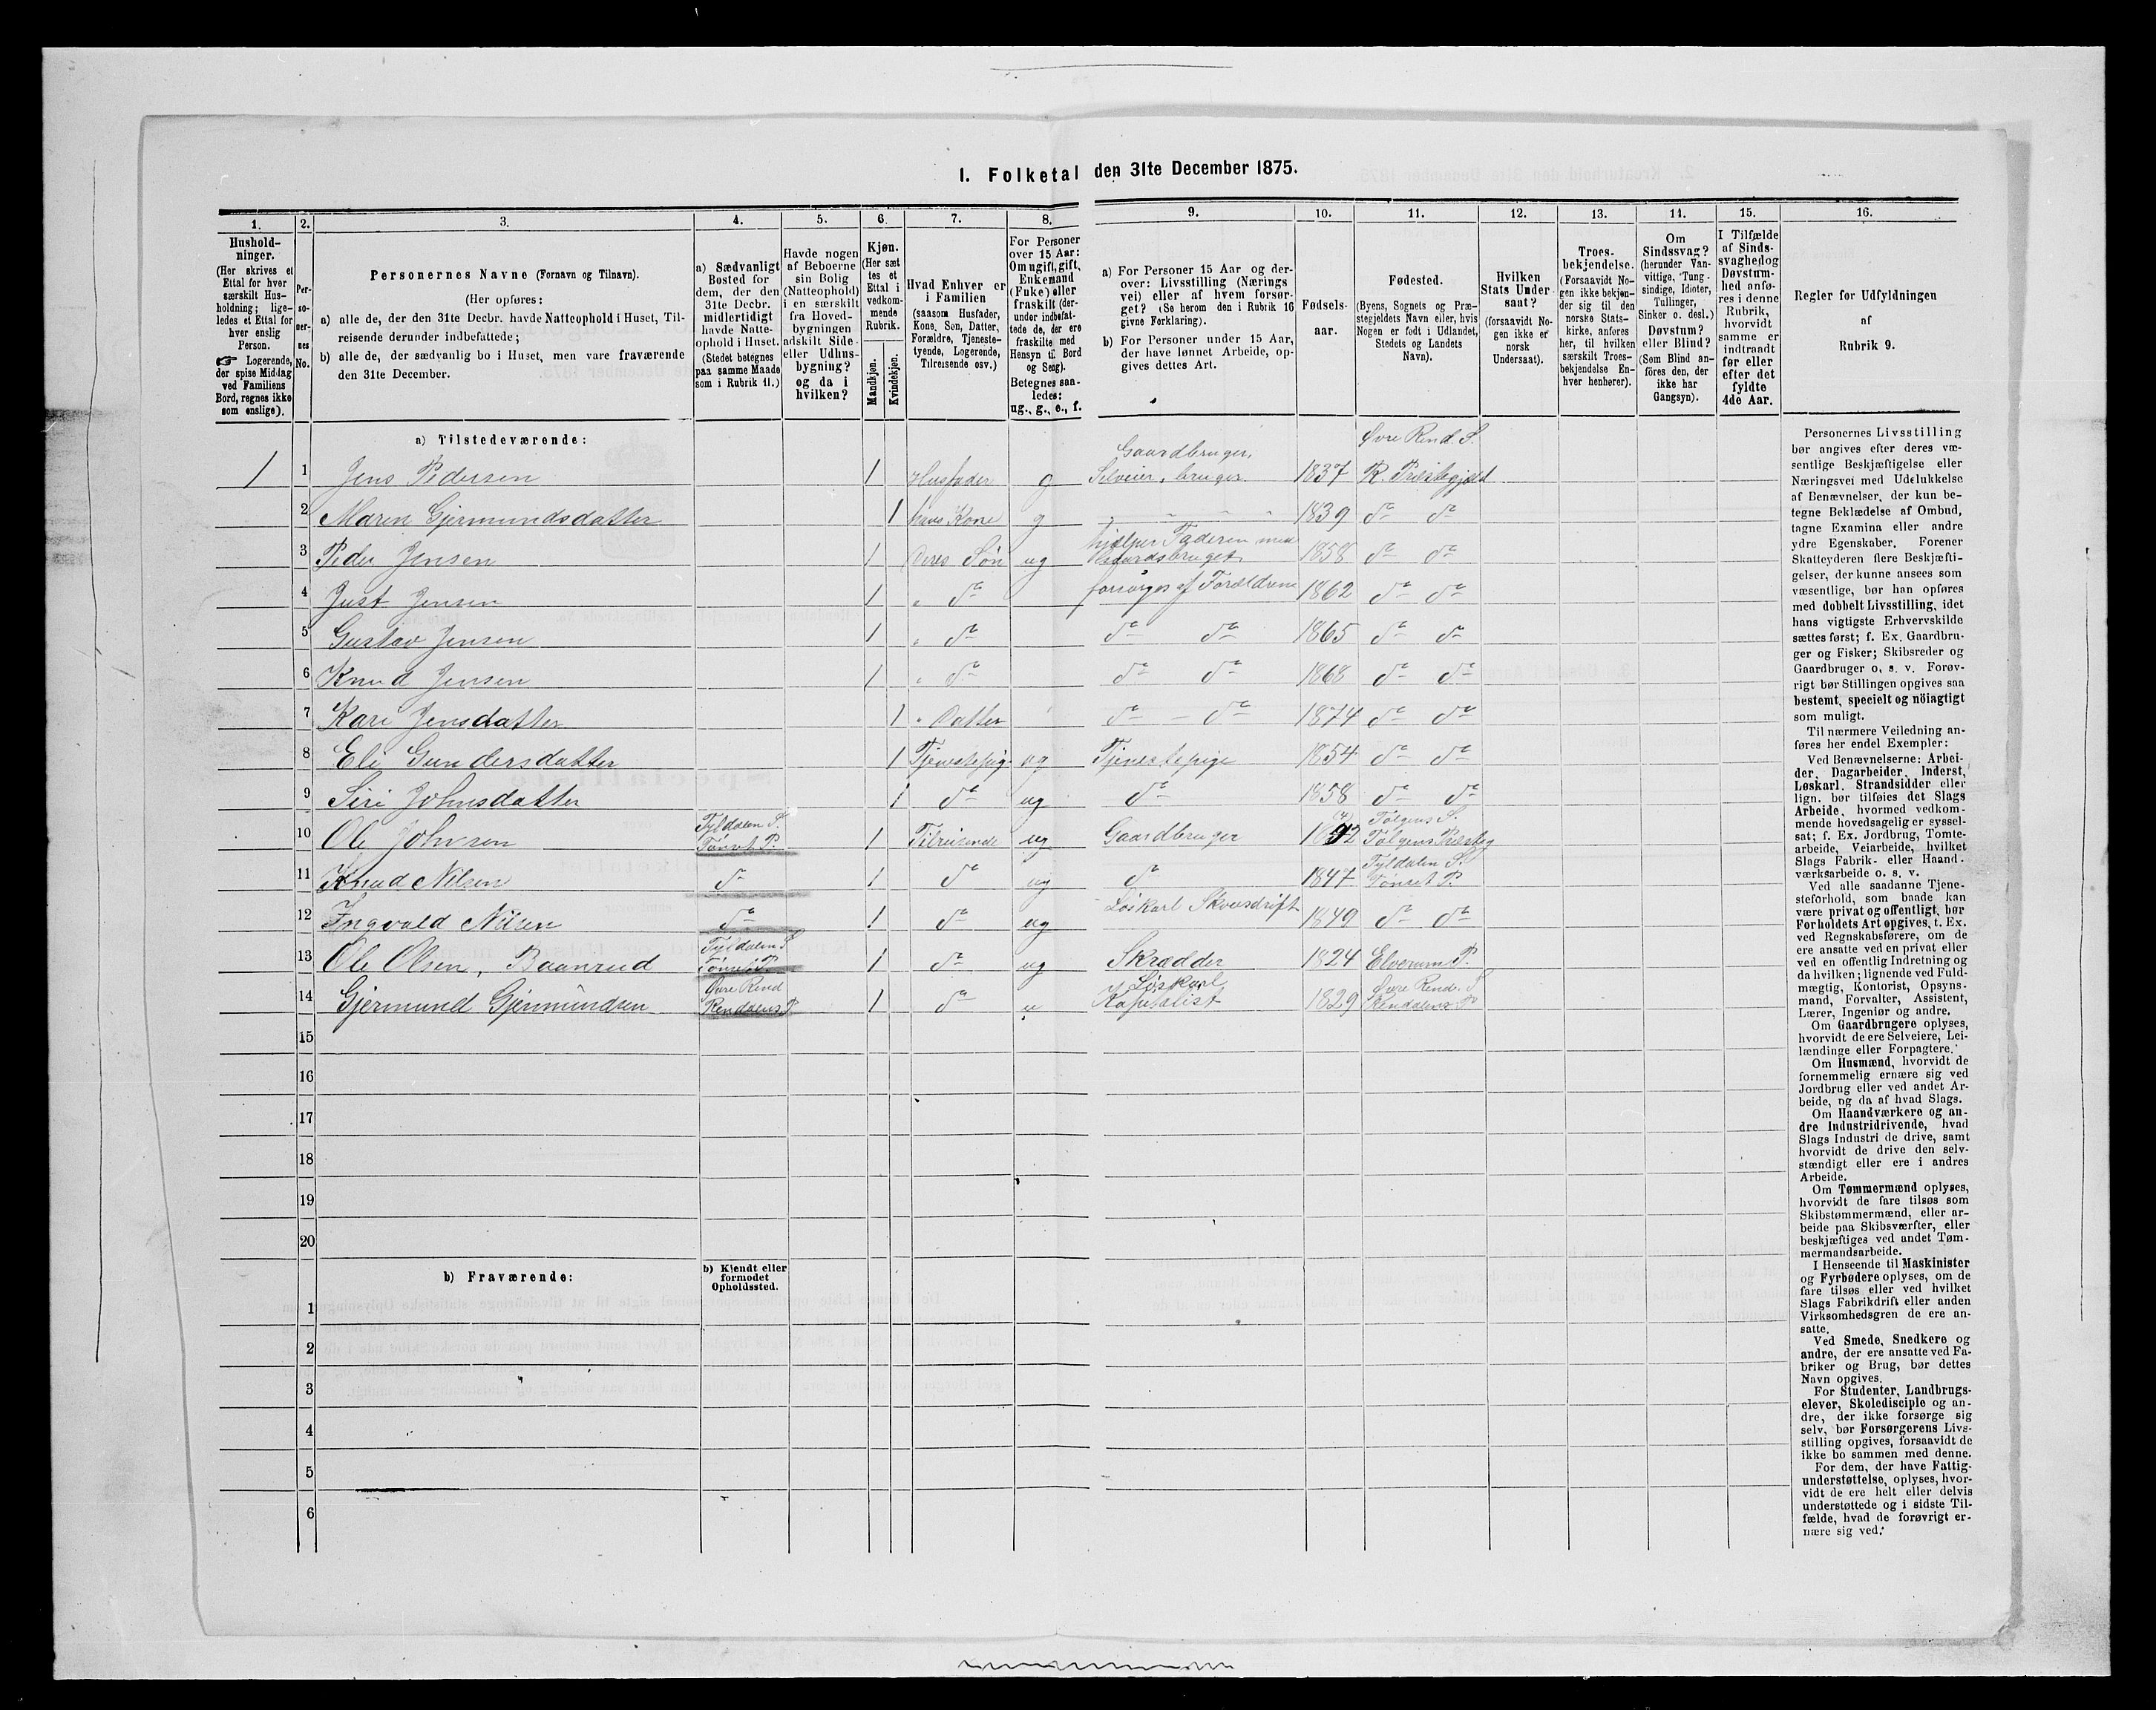 1. Folketal den 31te December 1875.
1. 2. 3. 4. 5. 6. 7. 8. 9. 10. 11. 12. 13. 14. 15. 16.
Hushold-
ninger.
(Her skrives et
Ettal for hver
særskilt Hus-
holdning; lige-
ledes et Ettal for
hver enslig
Person.
☞ Logerende,
der spise Middag
ved Familiens
Bord, regnes ikke
som enslige).
Per-
so-
ner-
nes
No.
Personernes Navne (Fornavn og Tilnavn).
(Her opføres:
a) alle de, der den 31te Decbr. havde Natteophold i Huset, Til-
reisende derunder indbefattede;
b) alle de, der sædvanlig bo i Huset, men vare fraværende
den 31te December.
a) Sædvanligt
Bosted for
dem, der den
31te Decbr.
midlertidigt
havde Natte-
ophold i Huset.
(Stedet betegnes
paa samme Maade
som i Rubrik 11.)
Havde nogen
af Beboerne
sin Bolig
(Natteophold)
i en særskilt
fra Hoved-
bygningen
adskilt Side-
eller Udhus-
bygning?
og da i
hvilken?
Kjøn.
(Her sæt
tes et
Ettal i
vedkom-
mende
Rubrik.
Mandkjøn.
Kvindekjøn.
Hvad Enhver er
i Familien
(saasom Husfader,
Kone, Søn, Datter,
Forældre, Tjeneste-
tyende, Logerende,
Tilreisende osv.)
For Personer
over 15 Aar:
Om ugift, gift,
Enkemand
(Enke) eller
fraskilt (der-
under indbefat-
tede de, der ere
fraskilte med
Hensyn til Bord
og Seng).
Betegnes saa-
ledes:
ug., g., e., f.
a) For Personer 15 Aar og der-
over: Livsstilling (Nærings
vei) eller af hvem forsør-
get? (Se herom den i Rubrik 16
givne Forklaring).
b) For Personer under 15 Aar,
der have lønnet Arbeide, op-
gives dettes Art.
Fødsels-
aar.
Fødested.
(Byens, Sognets og Præ-
stegjeldets Navn eller, hvis
Nogen er født i Udlandet,
Stedets og Landets
Navn).
Hvilken
Stats Under-
saat?
(forsaavidt No-
gen ikke er
norsk
Undersaat).
Troes-
bekjendelse.
(Forsaavidt No-
gen ikke bekjen-
der sig til den
norske Stats-
kirke, anføres
her, til hvilken
særskilt Troes-
bekjendelse En-
hver henhører).
Om
Sindssvag?
(herunder Van-
vittige, Tung-
sindige, Idioter,
Tullinger,
Sinker o. desl.)
Døvstum?
eller Blind?
(Som Blind an-
føres den, der
ikke har
Gangsyn).
I Tilfælde
af Sinds-
svaghed og
Døvstum-
hed anfø-
res i denne
Rubrik,
hvorvidt
samme er
indtraadt
før eller
efter det
fyldte
4de Aar.
Regler for Udfyldningen
af
Rubrik 9.
a) Tilstedeværende:
1 1 Jens Pedersen 1 Husfader g Gaardbruger, Selveier, bruger 1837 Øvre Rend. S. R. Præstegjeld
2 Maren Gjermundsdatter 1 hans Kone g 1839 do do
3 Peder Jensen 1 Deres Søn ug hjelper Faderen med Gaardsbruget 1858 do do
4 Just Jensen 1 " do forsørges af Forældrene 1862 do do
5 Gustav Jensen 1 " do do do 1865 do do
6 Knud Jensen 1 " do do do 1868 do do
7 Kari Jensdatter 1 " Datter do do 1874 do do
8 Eli Gundersdatter 1 Tjenestepig. ug Tjenestepige 1854 do do
9 Siri Johnsdatter 1 do ug do 1858 do do
10 Ole Johnsen Tyldalen S. Tønset P. 1 Tilreisende ug Gaardbruger Tolgens S. Tolgens Præsteg
11 Knud Nilsen do 1 do ug do 1847 Tyldalen S. Tønset P.
12 Ingvald Nilsen do 1 do ug Løskarl Skovsdrift 1849 do do
13 Ole Olsen, Baanrud Tyldalen S Tønset P. 1 do ug Skrædder 1824 Elverum P.
14 Gjermund Gjermundsen Øvre Rend Rendalens P. 1 do u Løskarl Kapitalist 1829 Øvre Rend. S Rendalens P
15
16
17
18
19
20
b) Fraværende:
b) Kjendt eller
formodet
Opholdssted.
1
2
3
4
5
6
Personernes Livsstilling
bør angives efter deres væ-
sentlige Beskjæftigelse eller
Næringsvei med Udelukkelse
af Benævnelser, der kun be-
tegne Beklædelse af Ombud,
tagne Examina eller andre
ydre Egenskaber. Forener
Skatteyderen flere Beskjæfti-
gelser, der kunne ansees som
væsentlige, bør han opføres
med dobbelt Livsstilling, idet
hans vigtigste Erhvervskilde
sættes først; f. Ex. Gaardbru-
ger og Fisker; Skibsreder og
Gaardbruger o. s. v. Forøv-
rigt bør Stillingen opgives saa
bestemt, specielt og nöiagtigt
som muligt.
Til nærmere Veiledning an-
føres her endel Exempler:
Ved Benævnelserne: Arbei-
der, Dagarbeider, Inderst,
Løskarl, Strandsidder eller
lign. bør tilføies det Slags
Arbeide, hvormed vedkom-
mende hovedsagelig er syssel-
sat; f. Ex. Jordbrug, Tomte-
arbeide, Veiarbeide, hvilket
Slags Fabrik- eller Haand-
værksarbeide o. s. v.
Ved alle saadanne Tjene-
steforhold, som baade kan
være privat og offentligt, bør
Forholdets Art opgives, t. Ex.
ved Regnskabsførere, om de
ere ansatte ved en privat eller
ved en offentlig Indretning og
da hvilken; lignende ved Fuld-
mægtig, Kontorist, Opsyns-
mand, Forvalter, Assistent,
Lærer, Ingeniør og andre.
Om Gaardbrugere oplyses,
hvorvidt de ere Selveiere, Lei-
lændinge eller Forpagtere.
Om Husmænd, hvorvidt de
fornemmelig ernære sig ved
Jordbrug eller ved andet Ar-
beide, og da af hvad Slags.
Om Haandværkere og an-
dre Industridrivende, hvad
Slags Industri de drive, samt
hvorvidt de drive den selv-
stændigt eller ere i andres
Arbeide.
Om Tømmermænd oplyses,
hvorvidt de fare tilsøs som
Skibstømmermænd, eller ar-
beide paa Skibsværfter, eller
beskjæftiges ved andet Tøm-
mermandsarbeide.
I Henseende til Maskinister
og Fyrbødere oplyses, om de
fare tilsøs eller ved hvilket
Slags Fabrikdrift eller anden
Virksomhedsgren de ere an-
satte.
Ved Smede, Snedkere og
andre, der ere ansatte ved Fa-
briker og Brug, bør dettes
Navn opgives.
For Studenter, Landbrugs-
elever, Skoledisciple og an-
dre, der ikke forsørge sig
selv, bør Forsørgerens Livs-
stilling opgives, forsaavidt de
ikke bo sammen med denne.
For dem, der have Fattig-
understøttelse, oplyses, hvor-
vidt de ere helt eller delvis
understøttede og i sidste Til-
fælde, hvad de forøvrigt er-
nære sig ved.